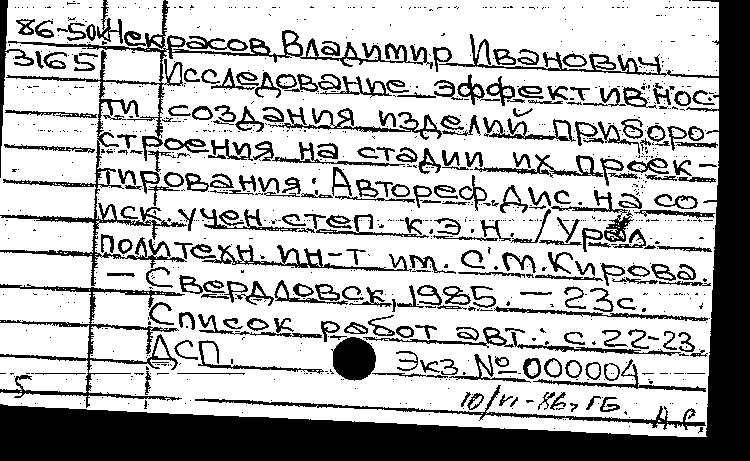 86-50к Некрасов, Владимир Иванович.
3165 Исследование эффективнос-
ти создания изделий приборо-
строения на стадии их проек-
тирования: Автореф. дис. на со-
иск. учен. степ. к.э.н. / Урал.
политехн. ин-т им. С.М.Кирова.
— Свердловск, 1985. — 23с.
Список работ авт.: с.22-23.
ДСП. Экз. № 000004.
5 10/VI-86г ГБ. А.С.